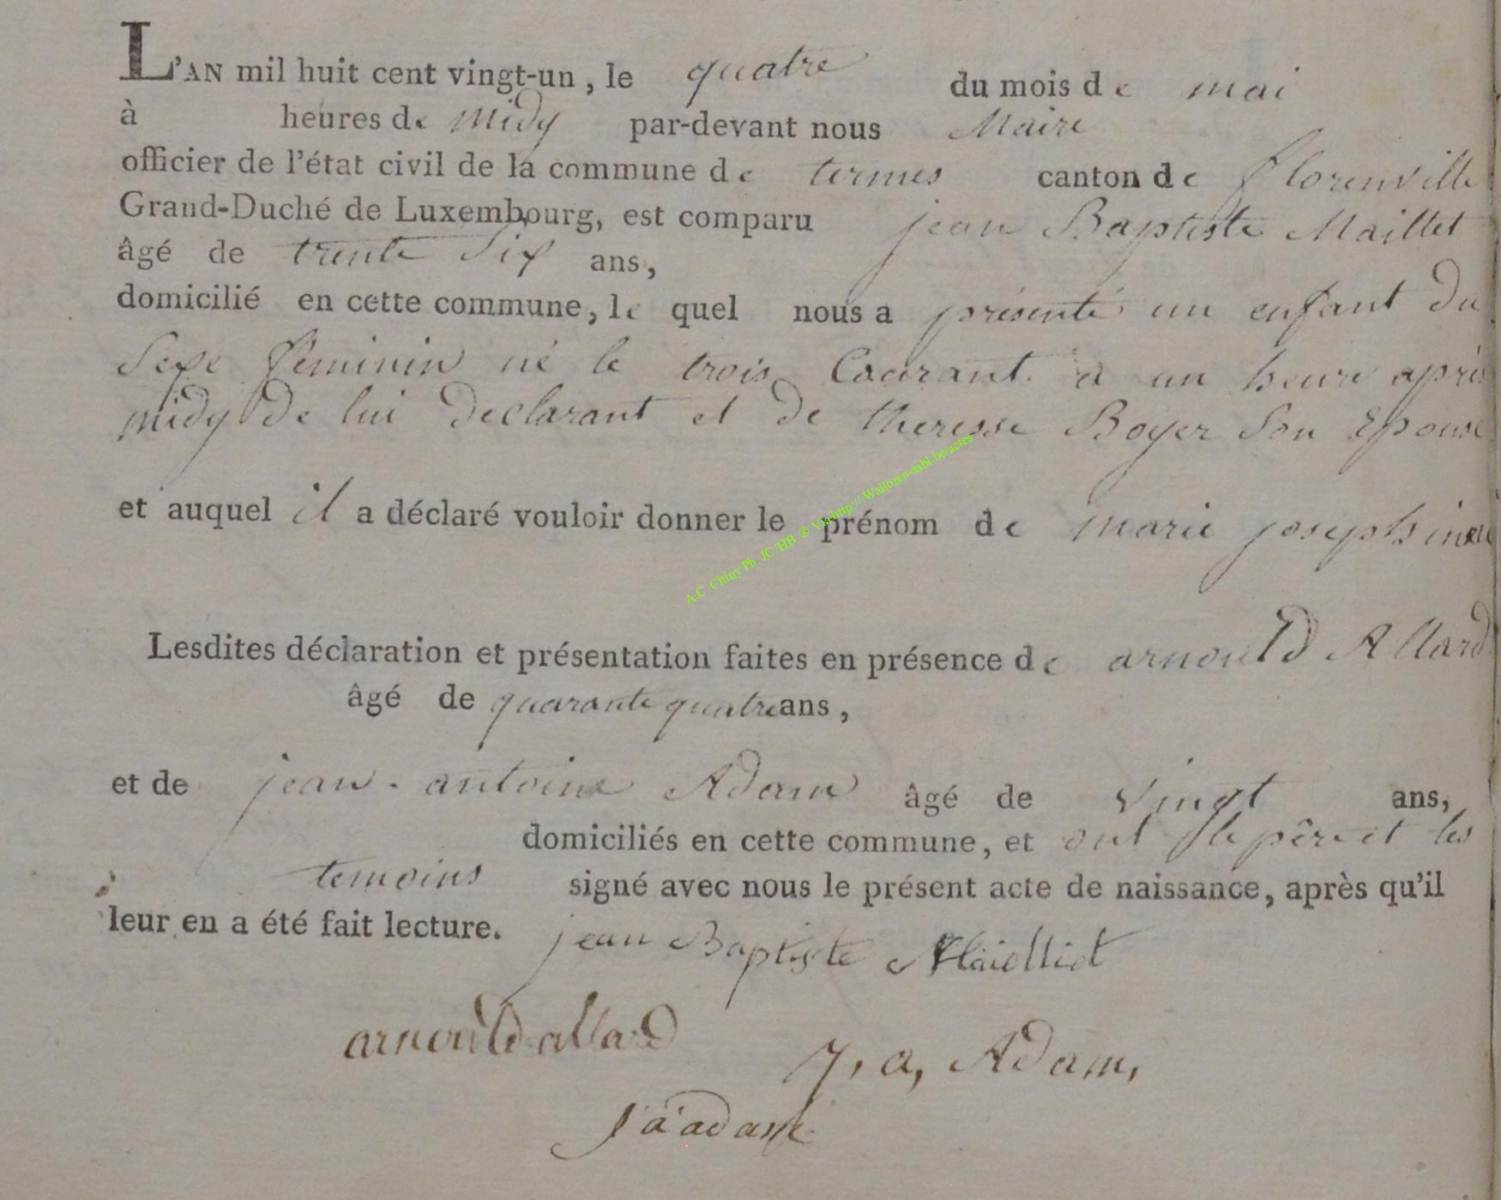 L'AN mil huit cent vingt-un, le quatre du mois de mai
à heures de midy par-devant nous Maire
officier de l'état civil de la commune de termes canton de florenville
Grand-Duché de Luxembourg, est comparu jean Baptiste Maillet
âgé de trente Six ans,
domicilié en cette commune, le quel nous a présenté un enfant du
Sexe féminin né le trois Courant à un heure après
midy de lui declarant et de theresse Boyer Son Epouse
et auquel il a déclaré vouloir donner le prénom de marie josephine
Lesdites déclaration et présentation faites en présence de arnould Allard
âgé de quarante quatre ans,
et de jean-antoine Adam âgé de vingt ans,
domiciliés en cette commune, et ont le père et les
temoins signé avec nous le présent acte de naissance, après qu'il
leur en a été fait lecture.
jean Baptiste
arnould allard
J, a, Adam,